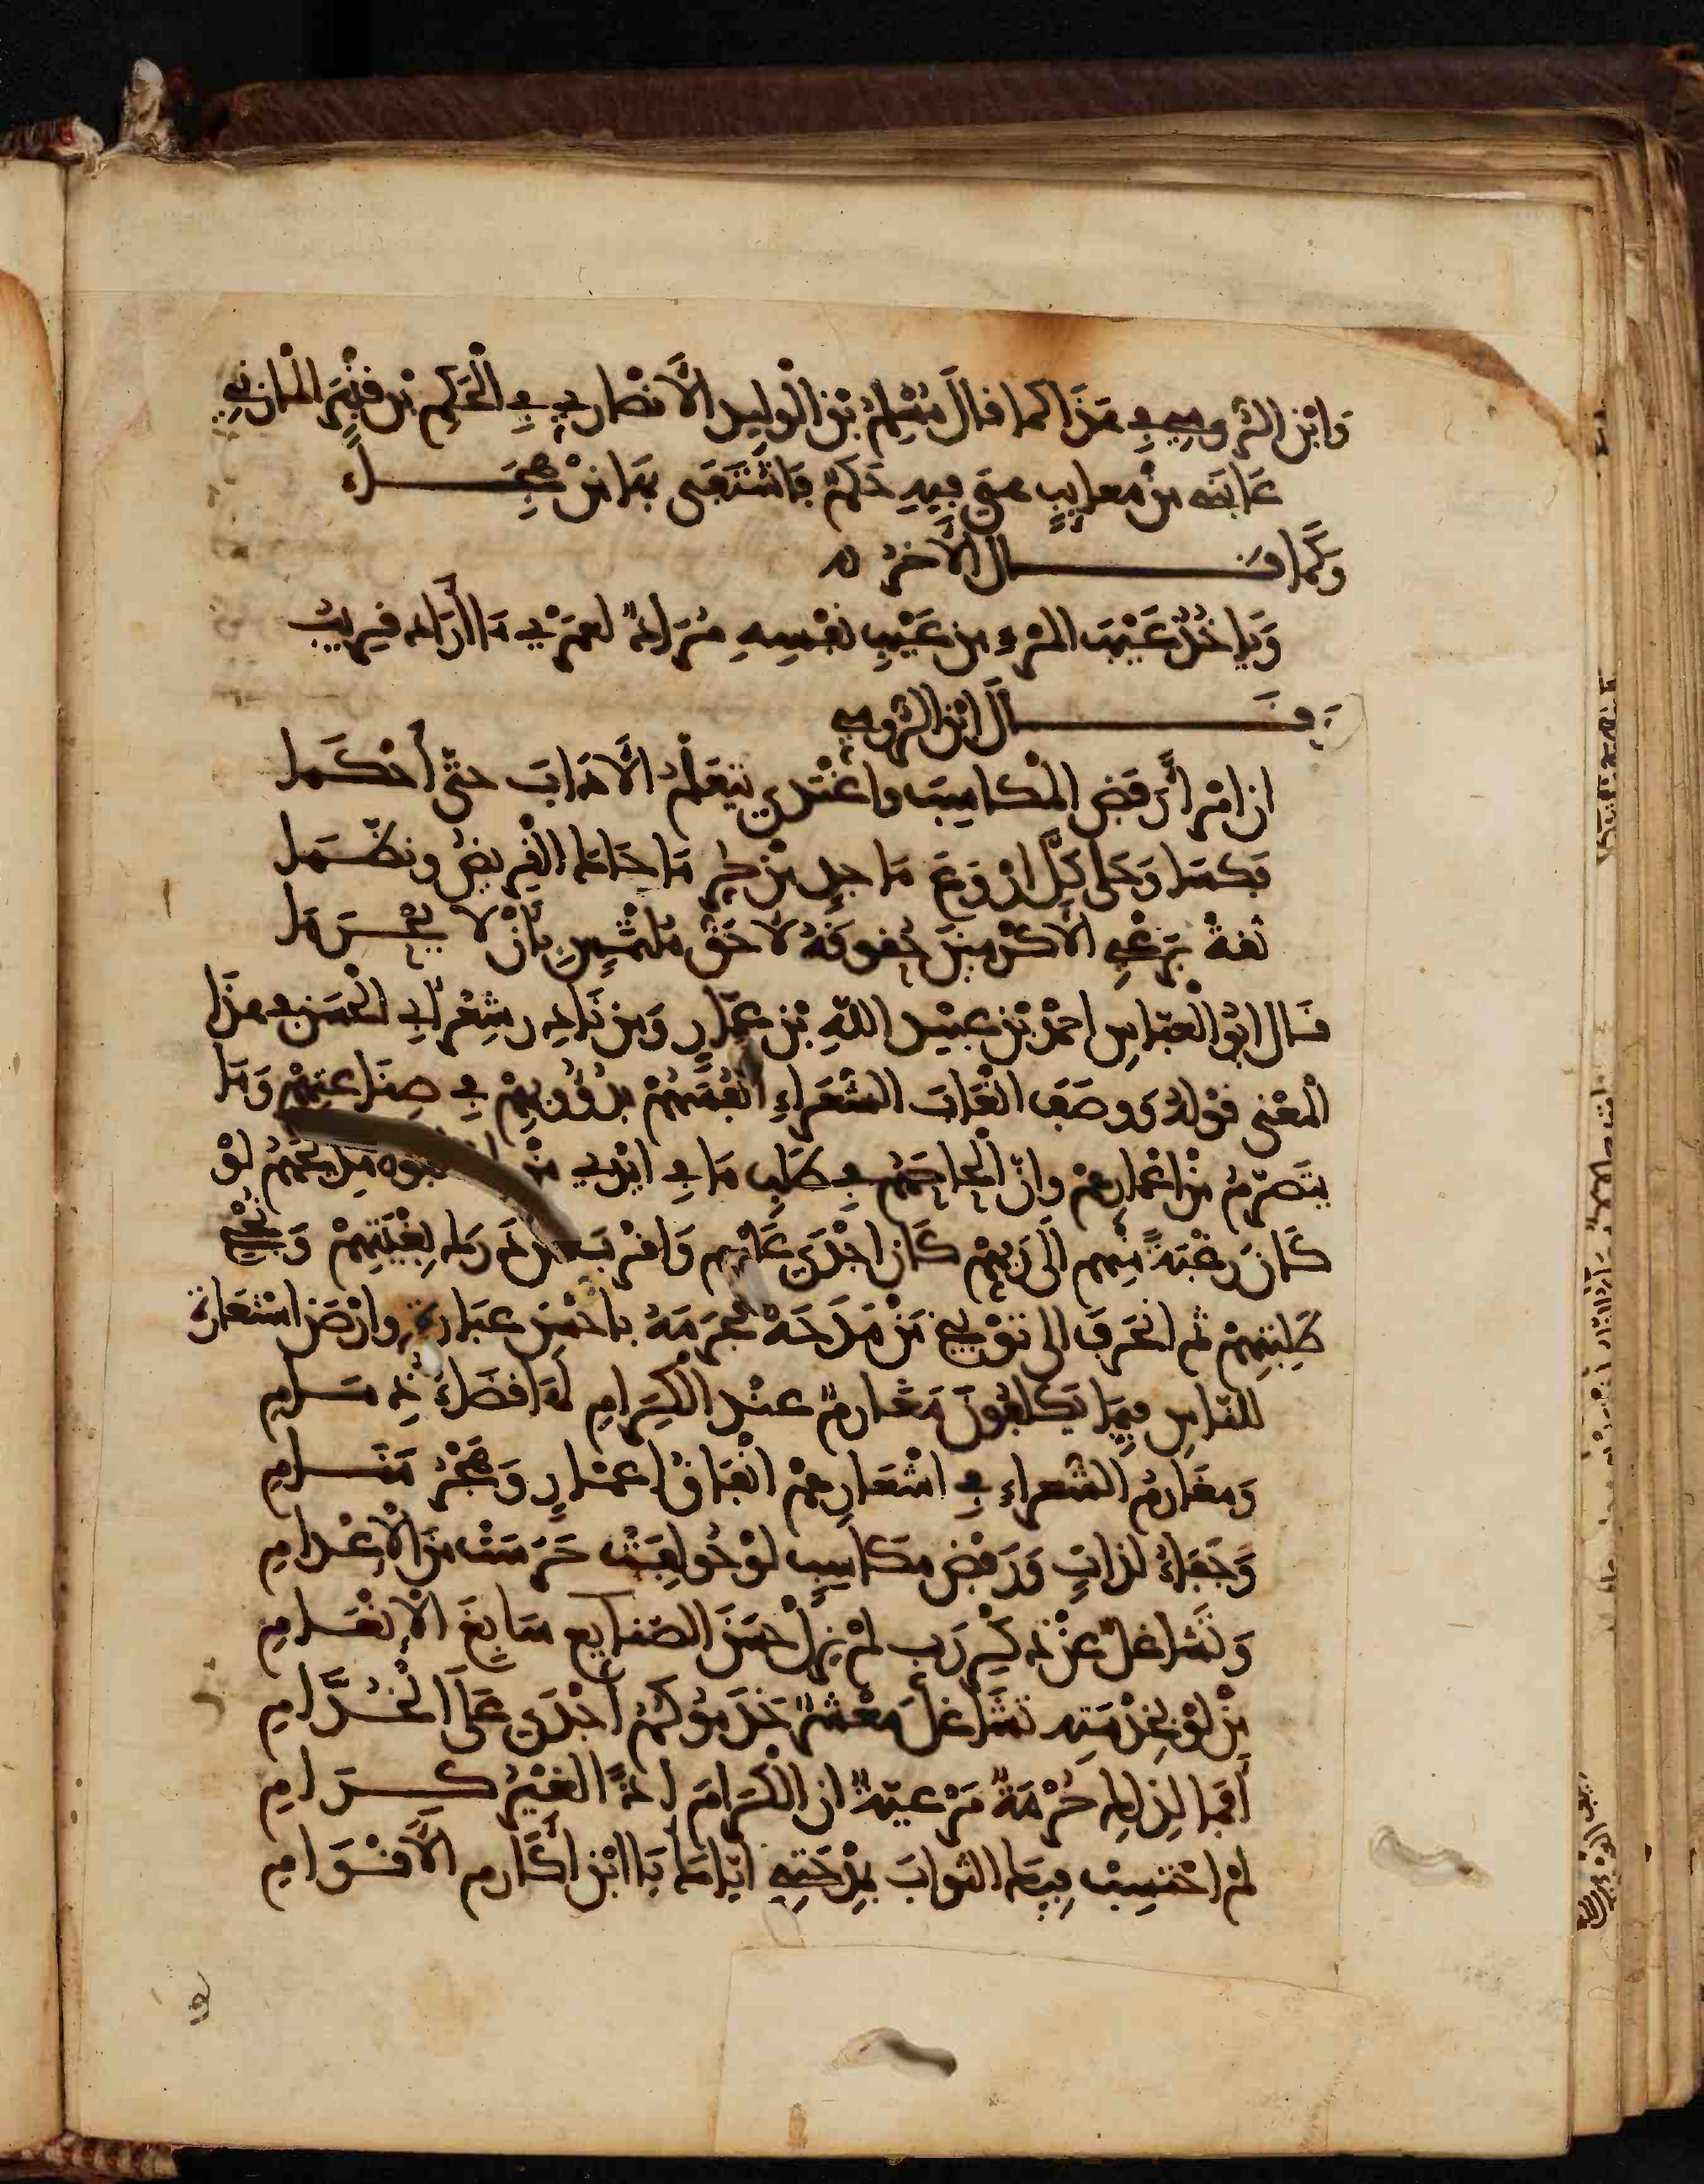 وَابْن الرُّومِي فِي هَذَا كما قالَ مُسْلِمُ بْن الْوَلِيد الأَنْصَارِي فِي الْحَكَمِ بْن قَنْبَرَ المَازِنِي
عَابَهُ مِنْ مَعَايِبٍ هِيَ فِيهِ حَكَمٌ فَاشْتَفَى بِهَا مِنْ هِجَاءِ
وَكَمَا قَال الأَخَرُ
وَيَاخُذُ عَيْبَ المَرْءِ مِن عَيْبِ نَفْسِهِ مُرَادٌ لَعَمْرِي مَا أَرَادَ قَرِيبُ
وَقَالَ ابْن الرُّومِي
إن امْرأً رَفَضَ المَكَاسِبَ واغْتَدَى يَتَعَلَّمُ الآدَابَ حتَّى أَحْكَمَا
فَكَسَا وَحَلَّى كُلَّ أرْوَعَ مَاجِدٍ مِنْ حُرِّ مَا حَاكَ القَرِيضُ ونَظَّمَا
ثقةً بِرَعْيِ الأَكْرَمِينَ حُقُوقَهُ لأَحَقُّ مُلْتَمِسٍ بِأَنْ لا يُحْرَمَا
قال ابُو الْعبّاسِ احمدُ بْن عبيْد اللهِ بْن عمّارٍ وَمِن نَادِر شِعْر أَبِي الْحَسَن فِي هَذَا
الْمعْنى قَوْلُهُ وَوصَفَ اتْعَابَ الشّعَرَاءِ انْفُسَهُمْ بِدُؤُوبِهِمْ فِي صِنَاعَتِهِمْ وَمَا
يتَصَرَّمُ مِنْ اعْمَارِهِمْ وانّ إلْحَاحَهُمْ فِي طَلَبِ مَا فِي ايْدِي مَنْ مِدَيحَهُمْ لَوْ
كَانَ رَغْبَةً مِنْهم الَى رَبِّهِمْ كَان اجْدَى عَلَيْهم وَاقْرَب مِن دَرَكِ بِغْيَتِهِمْ وَنُجْحِ
طَلِبَتِهِمْ ثم انْحَرَفَ الى تَوْبِيخِ مَنْ مَدَحَهُ فَحَرَمَهُ باحْسَن عبَارةٍ وارْضَى اسْتعَارةٍ
للنّاسِ فِيمَا يُكْلَفُونَ مَغَارمٌ عنْد الْكِرَامِ لَهَا قَضَاءُ ذِمَامِ
وَمَغَارِمُ الشّعراءِ فِي اشْعَارِهِمْ انْفَاقُ اعْمَارٍ وَهَجْرُ مَنَامِ
وَجَفَاءُ لَذّاتٍ وَرَفْضُ مَكَاسِبٍ لَوْ خُولِفَتْ حَرَسَتْ مِنَ الإِعْدَامِ
وَتَشَاغُلٌ عنْ ذِكْرِ رَبٍ لَمْ يَزَلْ حَسَنَ الصّنَايِعِ سَابِغَ الإنْعَامِ
مَنْ لَوْ بِخِدْمَتِهِ تَشَاغَلَ مَعْشَرٌ خَدَمُوكُمُ أَجْدَى عَلَى الْخُدَّامِ
أَفَمَا لِذَلِك حُرْمَةٌ مَرْعِيّةٌ ان الْكِرَامَ إذًا لَغَيْرُ كِرَامِ
لَمْ احْتَسِبْ فِيكَ الثوابَ بِمِدْحَتِي ايّاكَ يَا ابْن أَكَارم الأَقْوَامِ